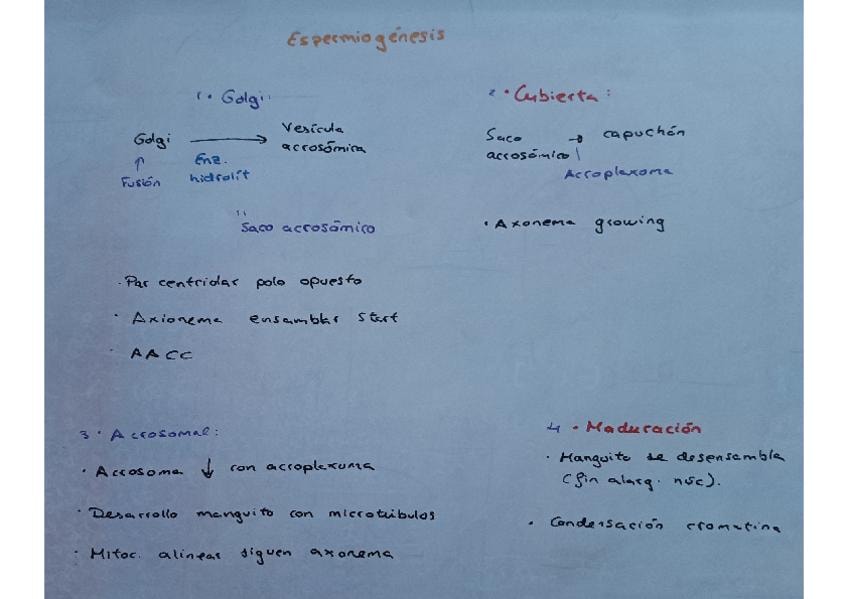 Espermiogénesis
1. Golgi:
Golgi → Vesícula
acrosómica
↑ Enz.
Fusión hidrolít
Saco acrosómico
· Par centriolar polo opuesto
· Axionema ensamblar start
· AACC
2 · Cubierta:
Saco → capuchón
acrosómico
Acroplaxoma
· Axonema growing
3 · Acrosomal:
· Acrosoma ↓ con acroplaxoma
· Desarrollo manguito con microtúbulos
· Mitoc. alinear siguen axonema
4 · Maduración
· Manguito se desensambla
(fin alarg. núc).
· Condensación cromatina